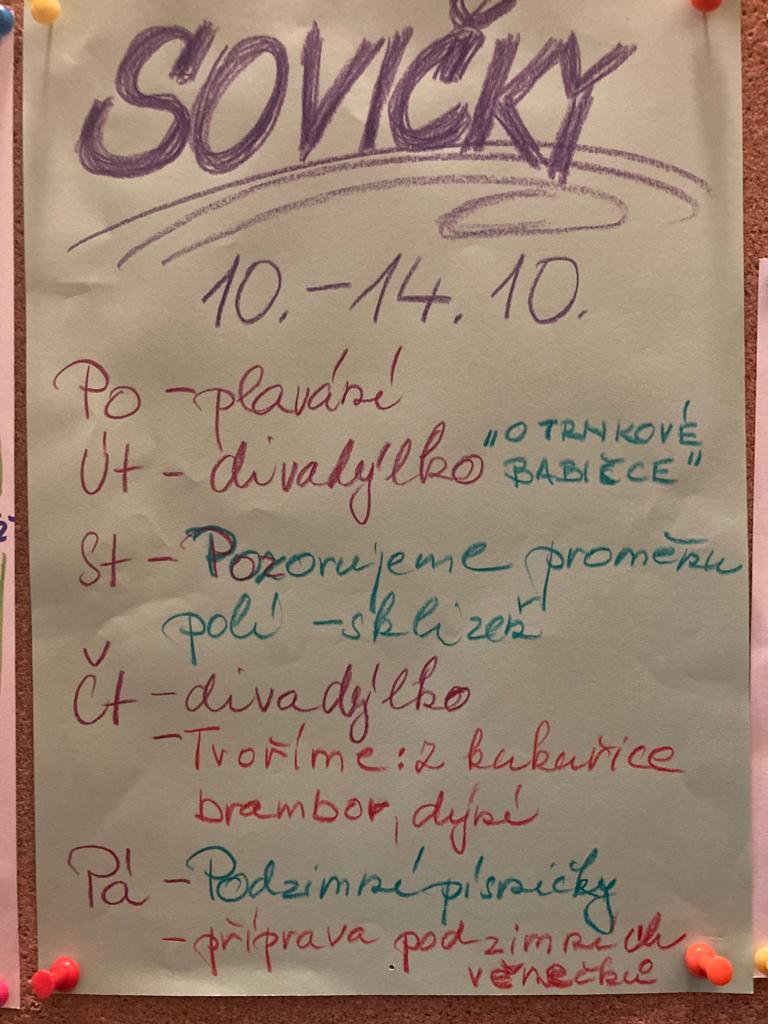 SOVIČKY
10. - 14. 10.
Po - plavání
Út - divadýlko "O TRNKOVÉ
BABIČCE"
St - Pozorujeme proměnu
polí - sklizeň
Čt - divadýlko
- Tvoříme: z kukuřice
brambor, dýní
Pá - Podzimní písničky
- příprava podzimních
věnečků